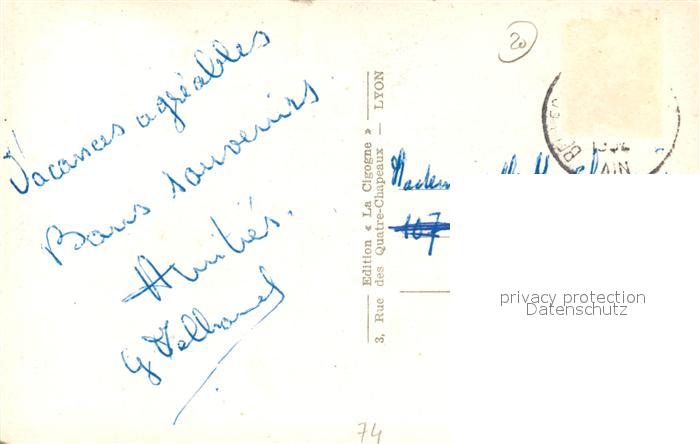 Vacances agréables
Bons souvenirs
Amitiés.
Edition « La Cigogne »
3, Rue des Quatre-Chapeaux — LYON
20
BE
AIN
107
privacy protection
Datenschutz
74